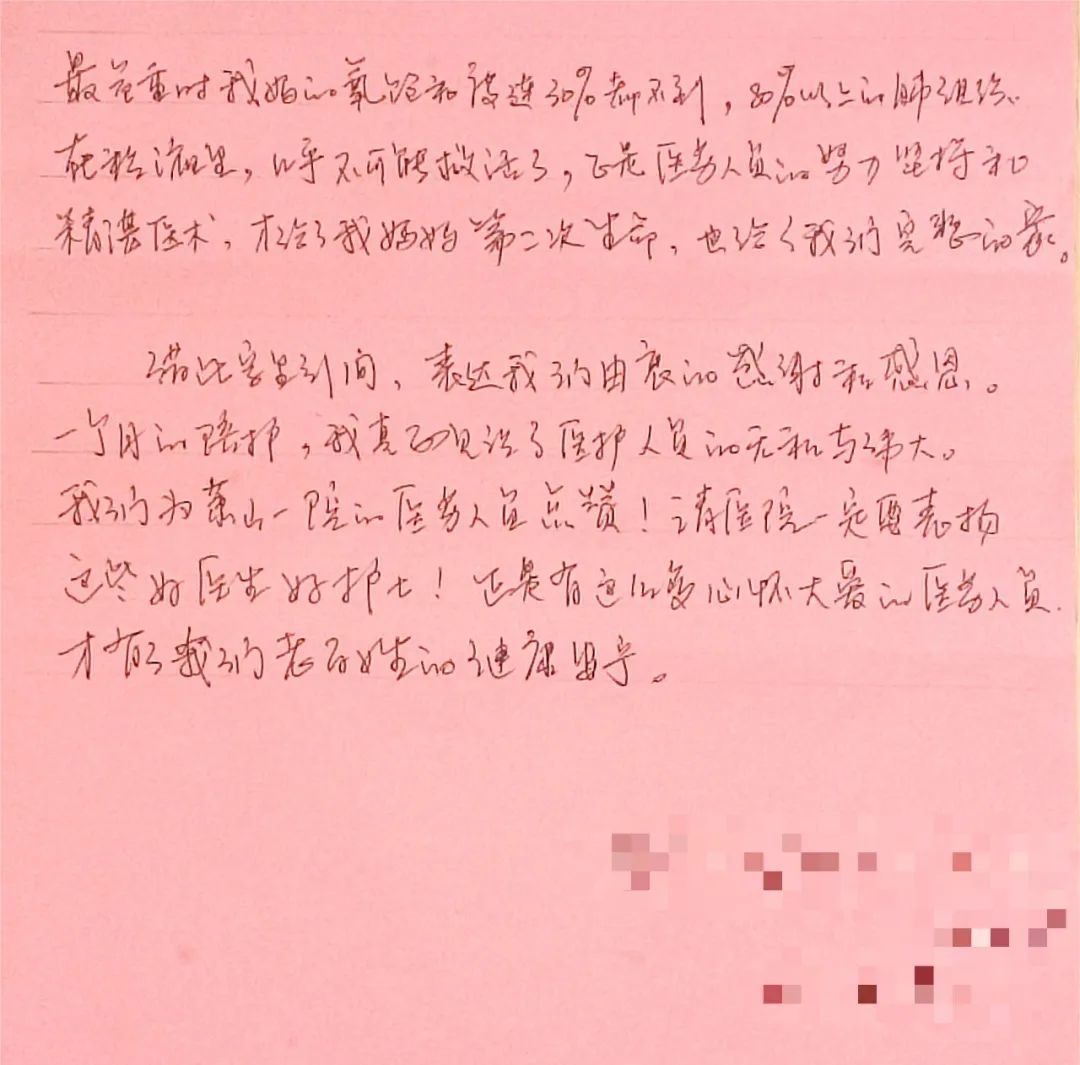 最危重时我妈的氧饱和度连30%都不到，80%以上的肺组织
在 里，几乎不可能救活了，正是医务人员的努力坚持和
精湛医术，才给了我妈妈第二次生命，也给了我们完整的家。
借此 间，表达我们由衷的感谢和感恩。
一个月的陪护，我真正见识了医护人员的无私与伟大。
我们为萧山一院的医务人员点赞！请医院一定要表扬
这些好医生好护士！正是有这么多心怀大爱的医务人员
才有了我们老百姓的健康安宁。